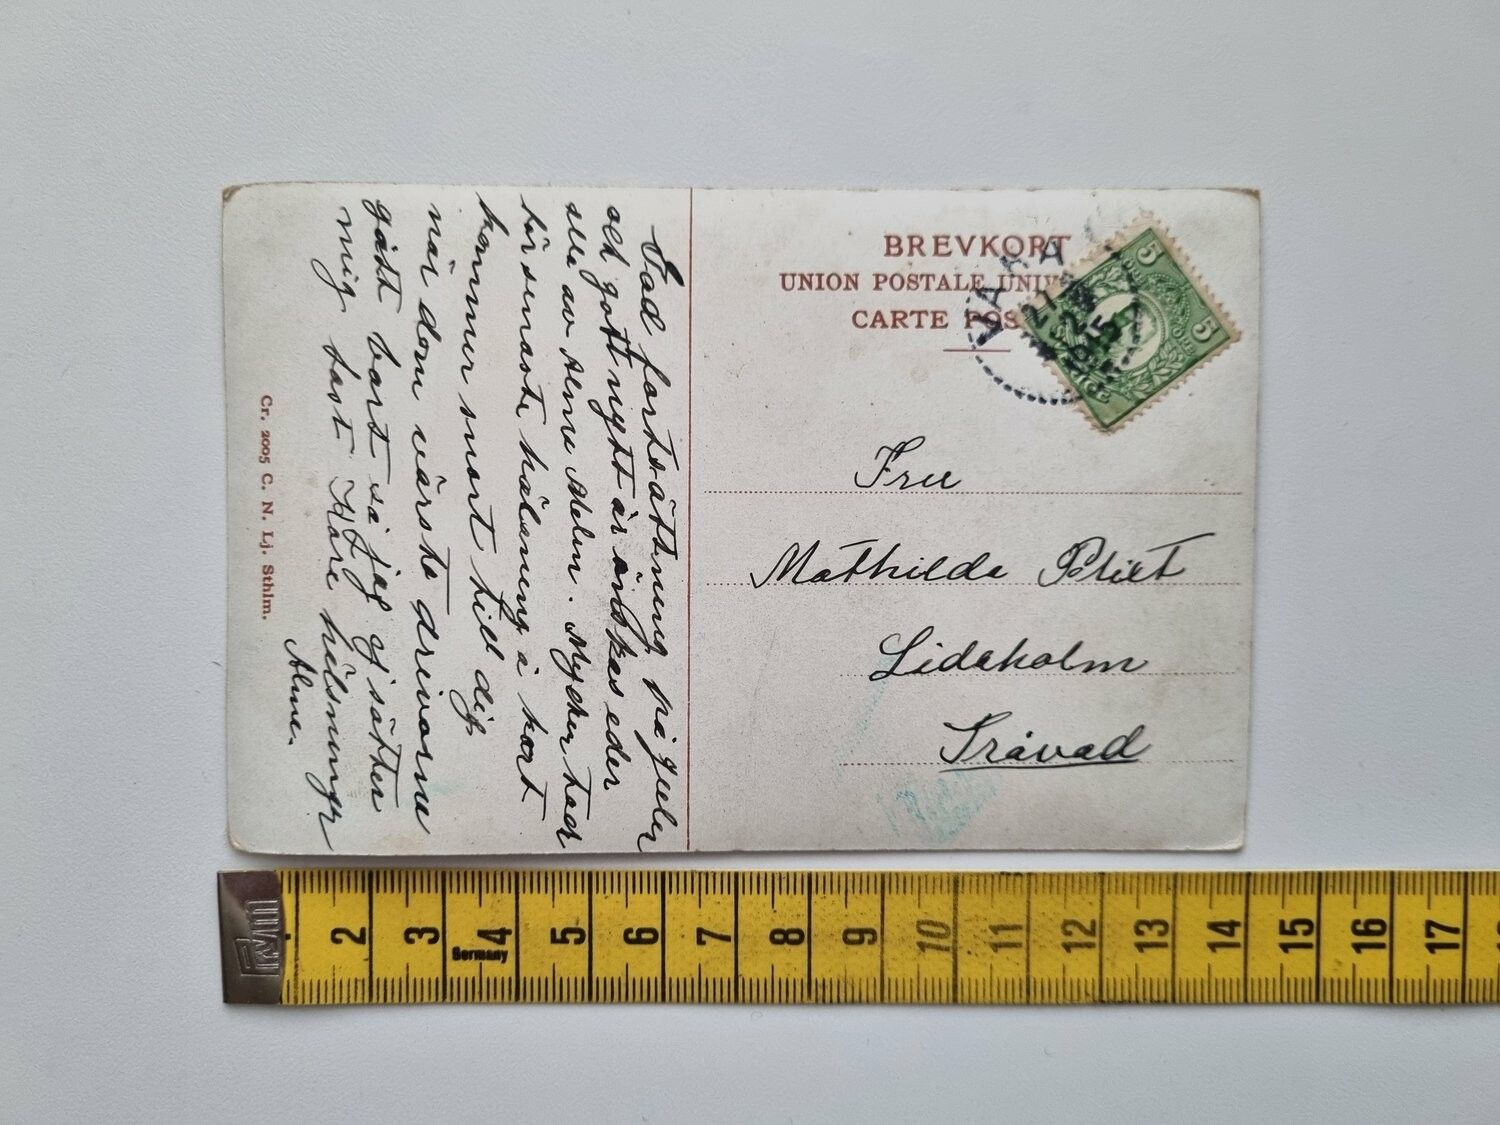 BREVKORT
UNION POSTALE UNIV
CARTE POS
VARA
27
12
15
5
5
Fru
Mathilda
Lidaholm
Tråvad
God fortsättning på julen
och gott nytt år önskas eder
alla av Alma Melin. Mycket tack
för senaste hälsning å kort
kommer snart till dig
när dom värsta drivorna
gått bort så jag ej sätter
mig fast Kära hälsningr
Alma.
Cr. 2005 C. N. Lj. Sthlm.
2 3 4 5 6 7 8 9 10 11 12 13 14 15 16 17
Germany